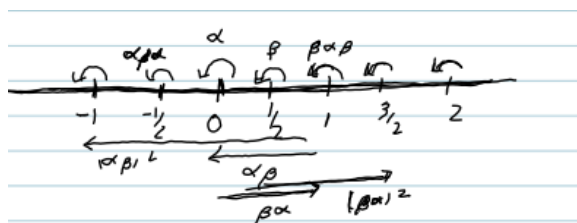 α
αβα β βαβ
-1 -1/2 0 1/2 1 3/2 2
(αβ)²
αβ
βα (βα)²